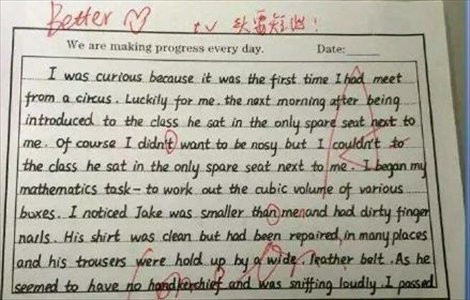 Better
tv 头要短些!
We are making progress every day. Date:
I was curious because it was the first time I had meet
from a circus. Luckily for me. the next morning after being
introduced to the class he sat in the only spare seat next to
me. Of course I didn't want to be nosy but I couldn't to
the class he sat in the only spare seat next to me. I began my
mathematics task-to work out the cubic volume of various
buxes. I noticed Jake was smaller than me and had dirty finger
nails. His shirt was clean but had been repaired, in many places
and his trousers were hold up by a wide. leather belt. As he
seemed to have no handkerchief and was sniffing loudly. I passed